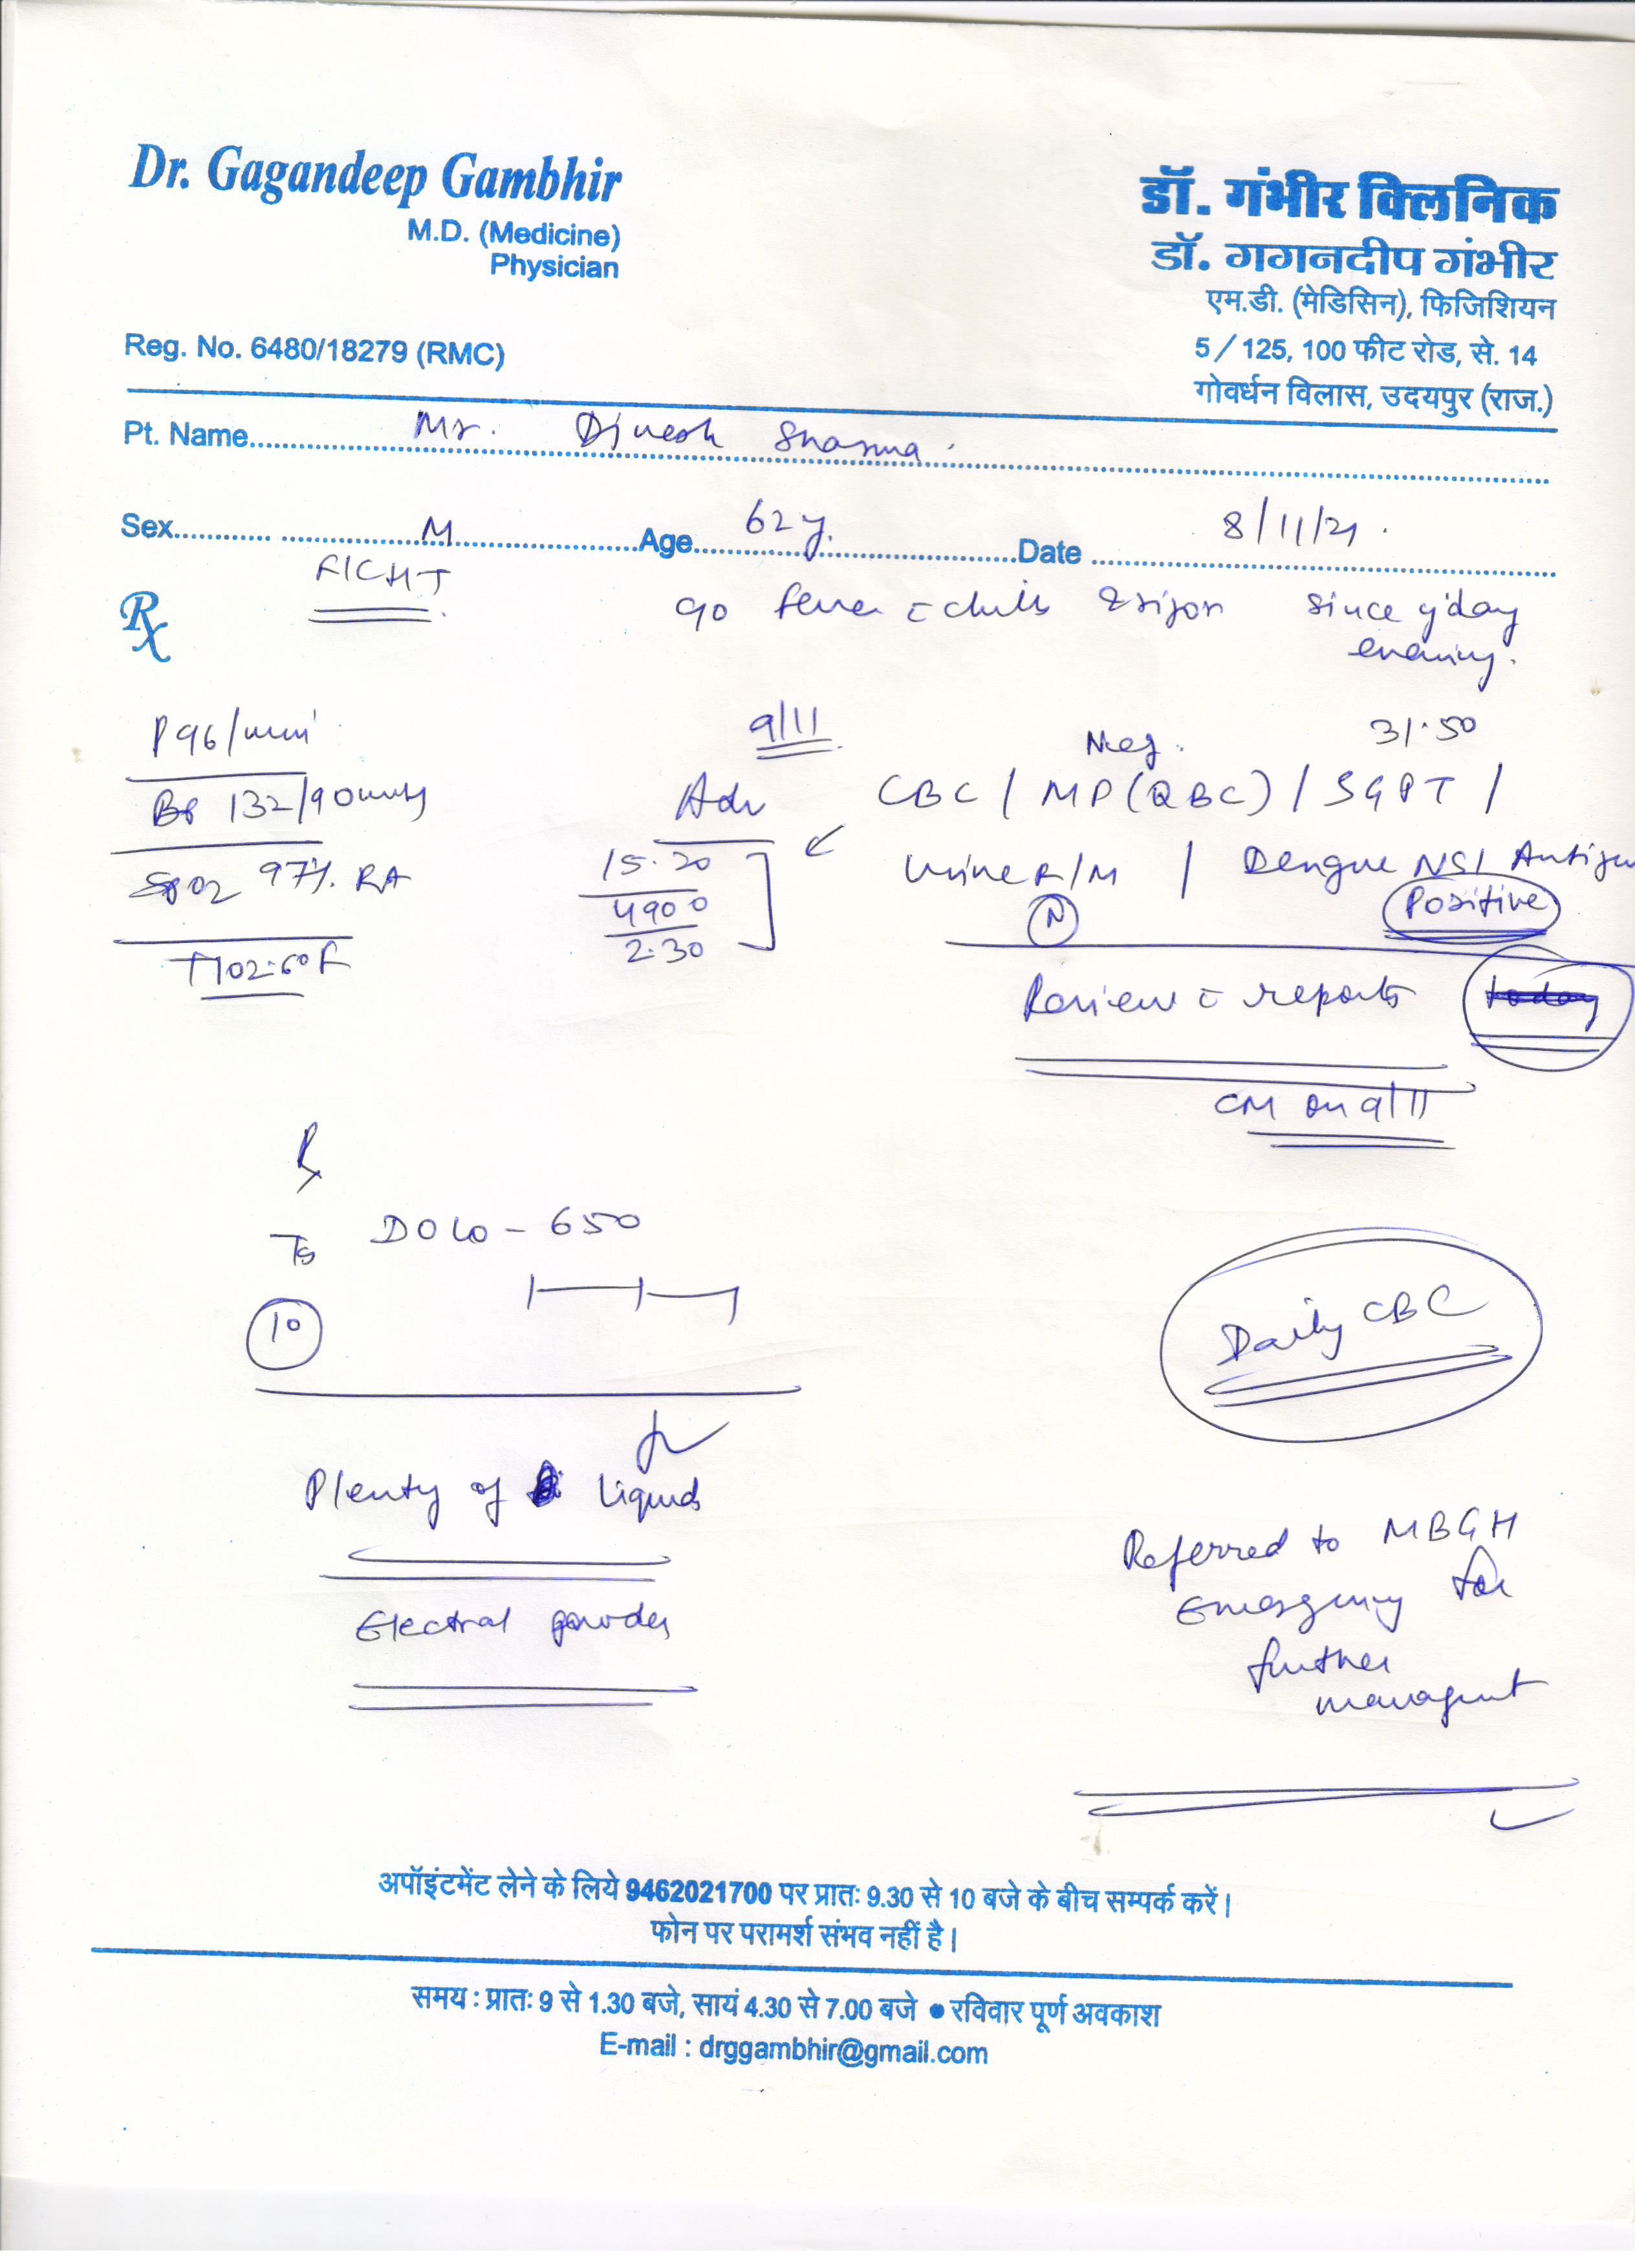 Dr. Gagandeep Gambhir
M.D. (Medicine)
Physician
Reg. No. 6480/18279 (RMC)
डॉ. गंभीर क्लिनिक
डॉ. गगनदीप गंभीर
एम.डी. (मेडिसिन), फिजिशियन
5/125, 100 फीट रोड, से. 14
गोवर्धन विलास, उदयपुर (राज.)
Pt. Name Mr. Dinesh Sharma.
Sex M Age 62y. Date 8/11/21.
Rx
c/o fever c chills & rigor since y'day
evening.
P 96/min
BP 132/90mmHg
SpO2 97%. RA
T 102.6°F
9/11
Neg. 31.50
Adv CBC / MP (QBC) / SGPT /
15.20
4900
2.30
Urine R/M / Dengue NS1 Antigen
N Positive
Review c reports today
on 9/11
Rx
DOLO-650
10
Plenty of Liquids
Electral powder
Daily CBC
Referred to MBGH
Emergency for
further
managment
अपॉइंटमेंट लेने के लिये 9462021700 पर प्रातः 9.30 से 10 बजे के बीच सम्पर्क करें।
फोन पर परामर्श संभव नहीं है।
समय : प्रातः 9 से 1.30 बजे, सायं 4.30 से 7.00 बजे ● रविवार पूर्ण अवकाश
E-mail : drggambhir@gmail.com